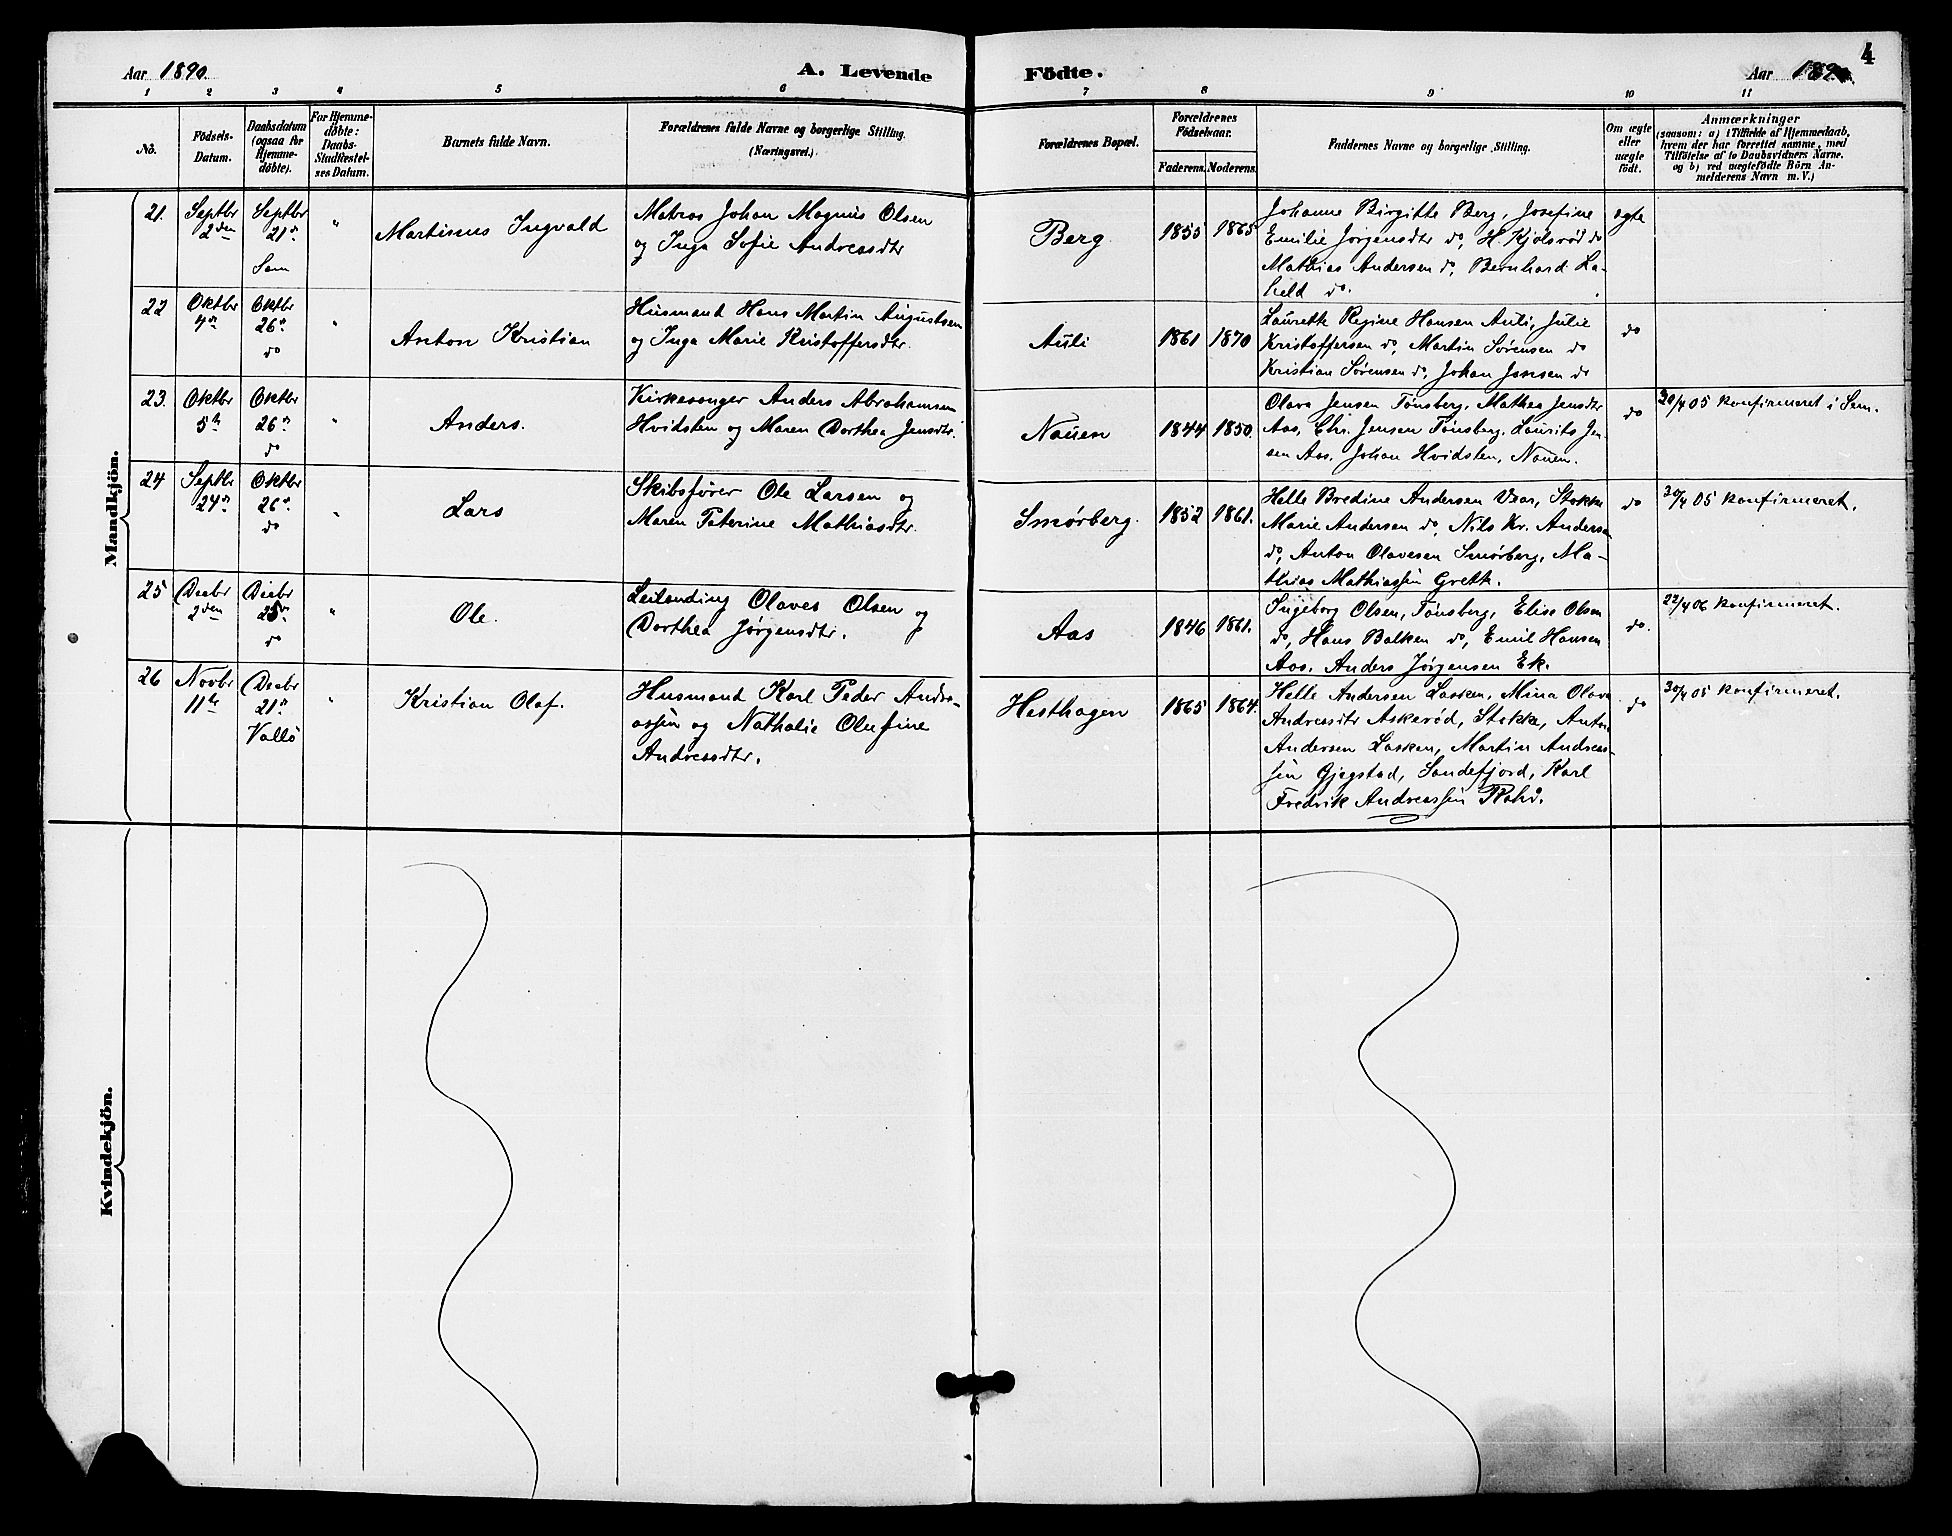 4
Aar 1890.
A. Levende Födte.
Aar 1890.
1 2 3 4 5 6 7 8 9 10 11
No.
Födsels-
Datum.
Daabsdatum
(ogsaa for
Hjemme-
döbte).
For Hjemme-
döbte:
Daabs-
Stadfestel-
ses Datum.
Barnets fulde Navn.
Forældrenes fulde Navne og borgerlige Stilling.
(Næringsvei.)
Forældrenes Bopæl.
Forældrenes
Födselsaar.
Faderens. Moderens.
Faddernes Navne og borgerlige Stilling.
Om ægte
eller
uægte
födt.
Anmærkninger
(saasom: a) i Tilfælde af Hjemmedaab,
hvem der har forrettet samme, med
Tilföielse af to Daabsvidners Navne.
og b) ved uægtefödte Börn An-
melderens Navn m. V.)
Mandkjön.
21.
Septbr
2den
Septbr
21de
Sem
"
Martinus Ingvald
Matros Johan Magnus Olsen
og Inga Sofie Andreasdtr
Berg
1855
1865
Johanne Birgitte Berg, Josefine
Emilie Jørgensdtr do, H. Kjølsrød do
Mathias Andersen do, Bernhard La-
held do.
ægte
22
Oktbr
4de
Oktbr
26de
do
"
Anton Kristian
Husmand Hans Martin Augustsen
og Inga Marie Kristoffersdtr.
Auli
1861
1870
Laurette Regine Hansen Auli, Julie
Kristoffersen do, Martin Sørensen do
Kristian Sørensen do, Johan Jensen do
do
23.
Oktbr
5te
Oktbr
26de
do
"
Anders.
Kirkesanger Anders Abrahamsen
Hvidsten og Maren Dorthea Jensdtr.
Nauen
1844
1850.
Olava Jensen Tønsberg, Mathea Jensdtr
Aas, Chr. Jensen Tønsberg. Laurits Jen-
sen Aas. Johan Hvidsten, Nauen.
do
30/4 05 konfirmeret i Sem.
24
Septbr
24de
Oktbr
26de
do
"
Lars
Skibsfører Ole Larsen og
Maren Katerine Mathiasdtr.
Smørberg.
1852
1861.
Helle Bredine Andersen Vaar, Stokke
Marie Andersen do, Nils Kr. Andersen
do, Anton Olavesen Smørberg, Ma-
thias Mathiassen Grette.
do
30/4 05 konfirmeret.
25
Decbr
2den
Decbr
25de
do
"
Ole.
Leilending Olaves Olsen og
Dorthea Jørgensdtr.
Aas
1846
1861.
Ingeborg Olsen, Tønsberg, Elise Olsen
do, Hans Balken do, Emil Hansen
Aas. Anders Jørgensen Ek.
do.
22/4 06 konfirmeret.
26
Novbr
11te
Decbr
21de
Vallø
"
Kristian Olaf.
Husmand Karl Peder Andre-
assen og Nathalie Olufine
Andreasdtr.
Hesthagen
1865
1864.
Helle Andersen Lasken, Mina Olava
Andreasdtr Askerød, Stokke, Anton
Andersen Lasken, Martin Andreas-
sen Gjegstad, Sandefjord, Karl
Fredrik Andreassen
do
30/4 05 konfirmeret.
Kvindekjön.